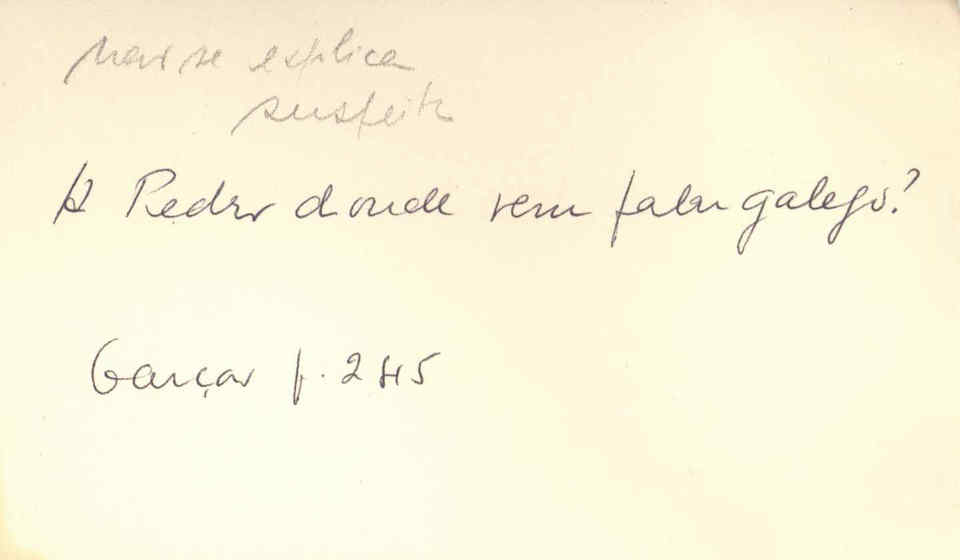 Não se explica
suspeito
A Pedro donde vem falar galego?
Garção p. 245